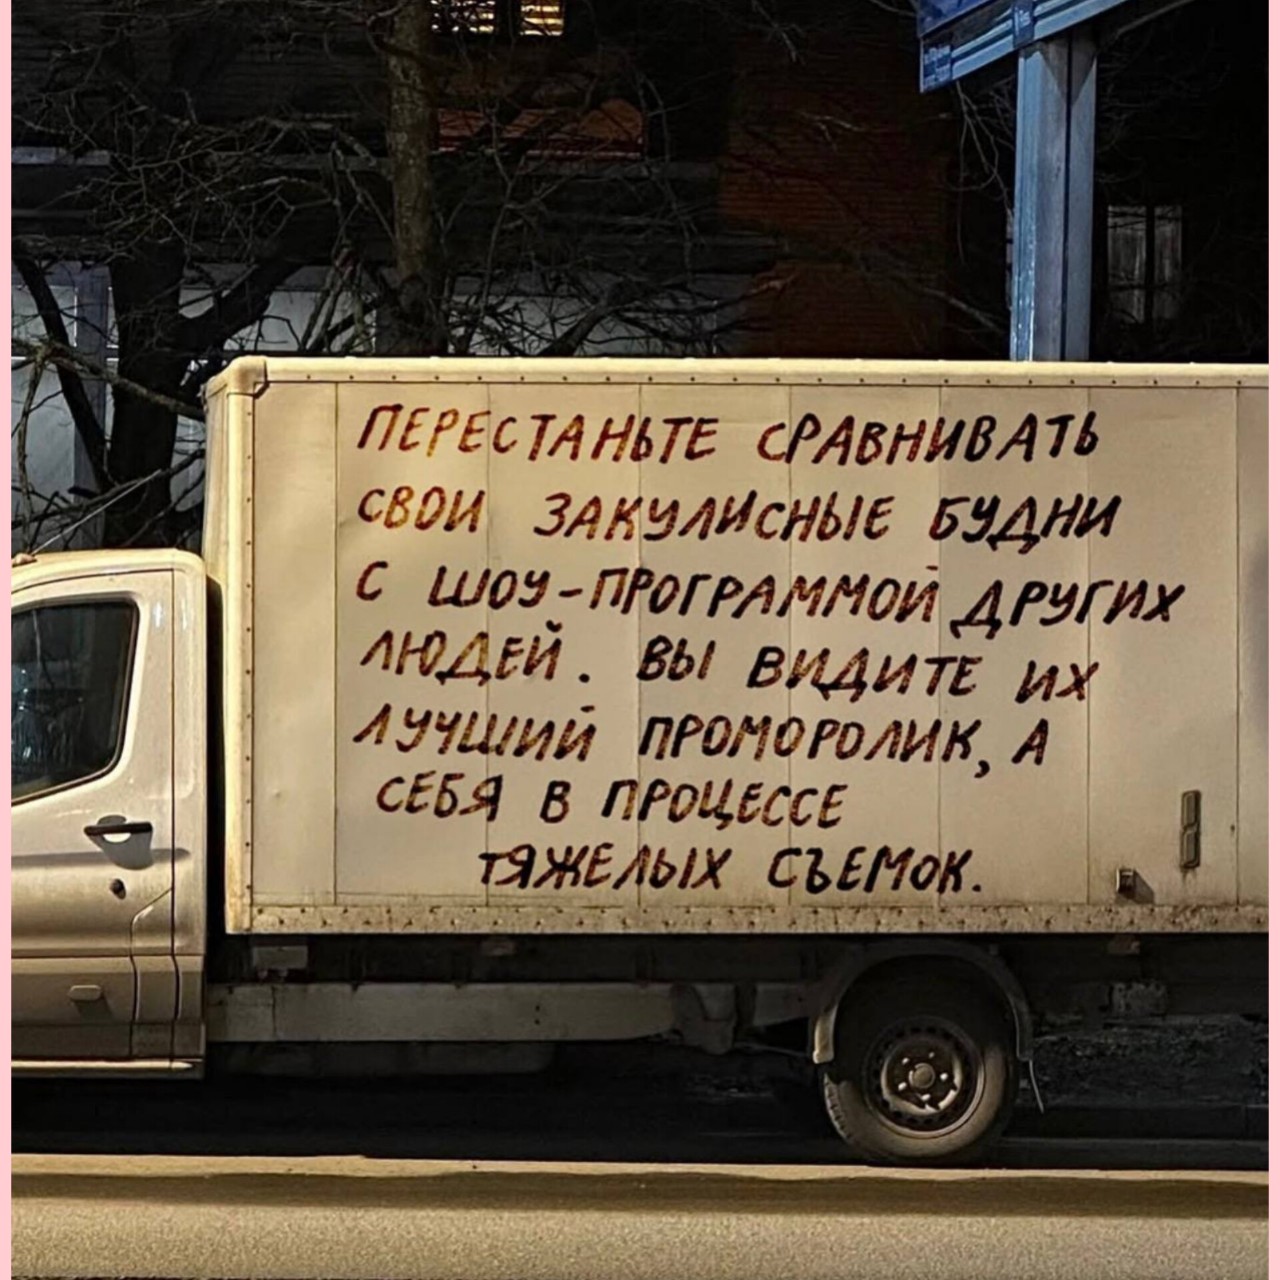 ПЕРЕСТАНЬТЕ СРАВНИВАТЬ
СВОИ ЗАКУЛИСНЫЕ БУДНИ
С ШОУ-ПРОГРАММОЙ ДРУГИХ
ЛЮДЕЙ. ВЫ ВИДИТЕ ИХ
ЛУЧШИЙ ПРОМОРОЛИК, А
СЕБЯ В ПРОЦЕССЕ
ТЯЖЕЛЫХ СЪЕМОК.